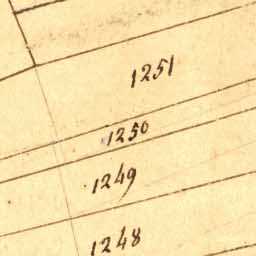 1251
1250
1249
1248